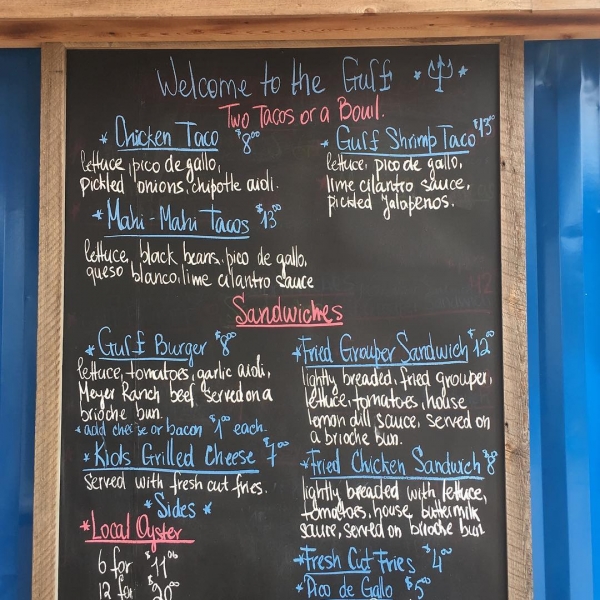 Welcome to the Gulf
Two Tacos or a Bowl.
* Chicken Taco $8⁰⁰
lettuce, pico de gallo,
pickled onions, chipotle aioli.
* Gulf Shrimp Taco $13⁰⁰
lettuce, pico de gallo,
lime cilantro sauce,
pickled Jalapenos.
* Mahi-Mahi Tacos $13⁰⁰
lettuce, black beans, pico de gallo,
queso blanco, lime cilantro sauce
Sandwiches
* Gulf Burger $8⁰⁰
lettuce, tomatoes, garlic aioli,
Meyer Ranch beef, served on a
brioche bun.
* add cheese or bacon $1⁰⁰ each.
* Kids Grilled Cheese $7⁰⁰
served with fresh cut fries.
* Fried Grouper Sandwich $12⁰⁰
lightly breaded, fried grouper,
lettuce, tomatoes, house
lemon dill sauce, served on
a brioche bun.
* Fried Chicken Sandwich $8
lightly breaded with lettuce,
tomatoes, house buttermilk
sauce, served on brioche bun
* Sides *
* Local Oyster
6 for $11⁰⁰
12 for $20⁰⁰
* Fresh Cut Fries $4⁰⁰
* Pico de Gallo $5⁰⁰